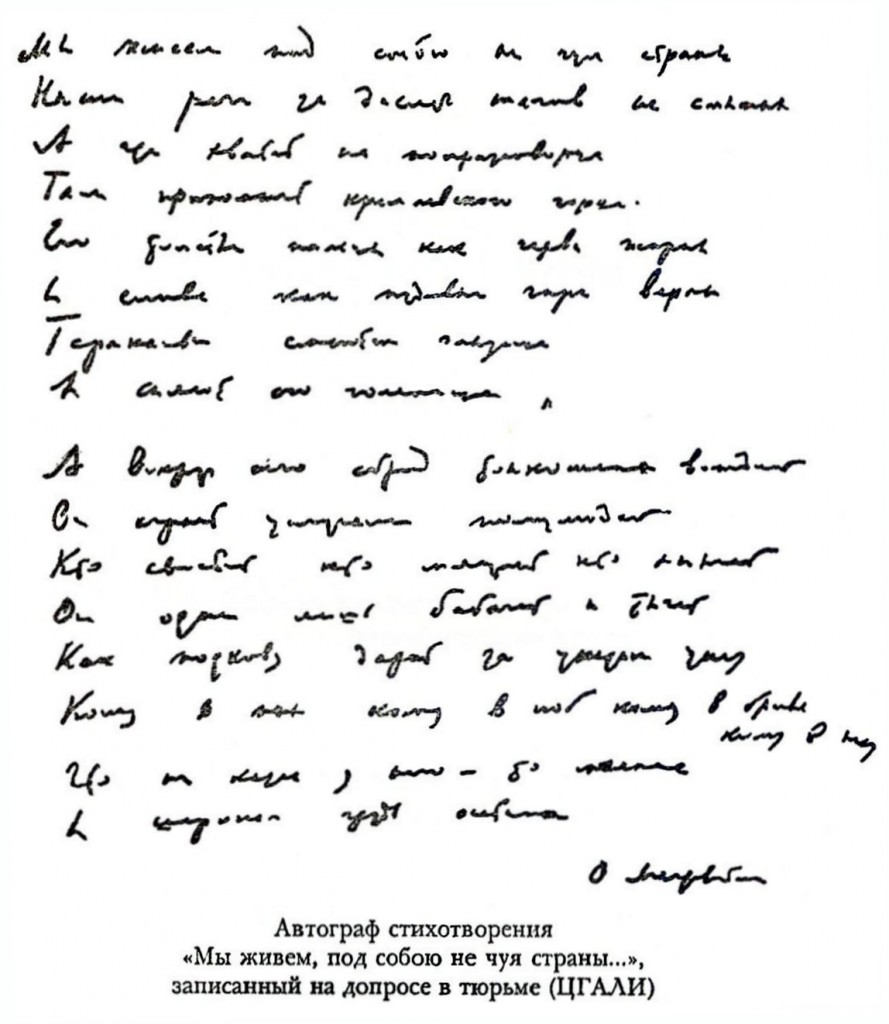 Мы живем под собою не чуя страны
Наши речи за десять шагов не слышны
А где хватит на полразговорца
Там припомнят кремлевского горца.
Его толстые пальцы как черви жирны
И слова как пудовые гири верны
Тараканьи смеются глазища
И сияют его голенища
А вокруг его сброд тонкошеих вождей
Он играет услугами полулюдей
Кто свистит кто мяучит кто хнычет
Он один лишь бабачит и тычет
Как подкову дарит за указом указ
Кому в пах кому в лоб кому в бровь
кому в глаз
Что ни казнь у него - то малина
И широкая грудь осетина
О Мандельштам
Автограф стихотворения
«Мы живем, под собою не чуя страны...»,
записанный на допросе в тюрьме (ЦГАЛИ)